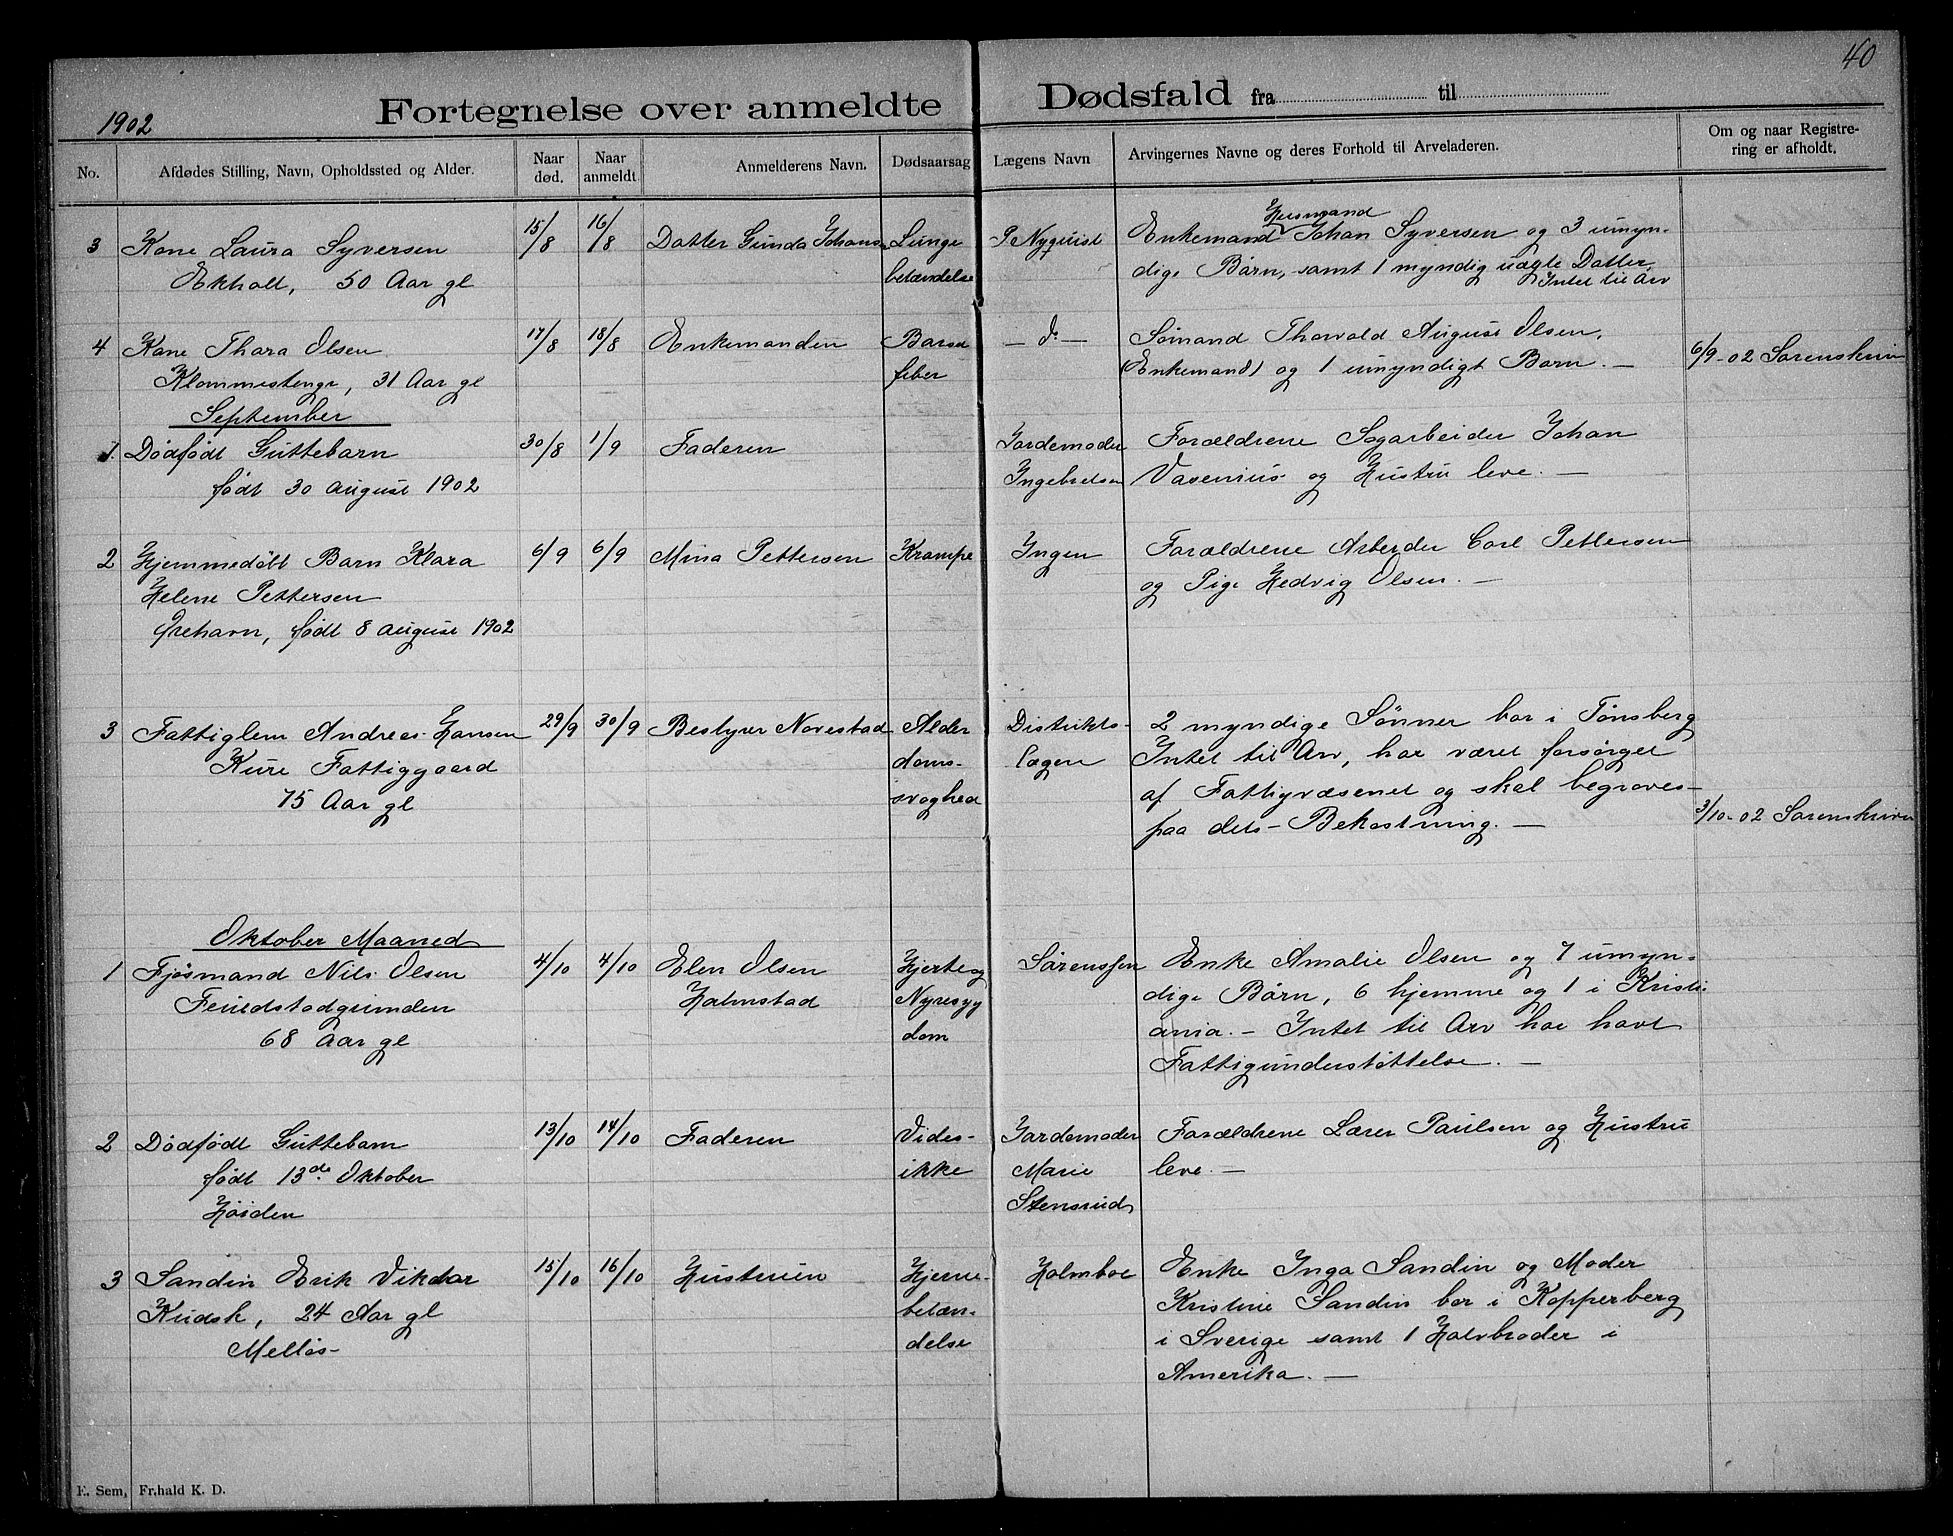 40
1902
Fortegnelse over anmeldte Dødsfald fra til
No.
Afdødes Stilling, Navn, Opholdssted og Alder.
Naar død.
Naar anmeldt.
Anmelderens Navn.
Dødsaarsag
Lægens Navn
Arvingernes Navne og deres Forhold til Arveladeren.
Om og naar Registrering er afholdt.
3 Kone Laura Syversen
Ekholt, 50 Aar gl
15/8 16/8
Datter Gunda Johans
Lunge
betændelse
P Nyquist
Husmand
Enkemand Johan Syversen og 3 umyn-
dige Børn, samt 1 myndig uægte Datter
Intet til Arv
4 Kone Thora Olsen
Klommestengr, 31 Aar gl
17/8 18/8
Enkemanden
Barsel
feber
— do —
Sømand Thorvald August Olsen,
(Enkemand) og 1 umyndigt Barn. —
6/9-02 Sorenskriv
September
1. Dødfødt Guttebarn
født 30 august 1902
30/8 1/9
Faderen
Jordemoder
Ingebretsen
Forældrene Sagarbeider Johan
Vasenius og Hustru leve. —
2 Hjemmedøbt Barn Klara
Helene Pettersen
Grehavn, født 8 august 1902
6/9 6/9
Mina Pettersen
Krampe
Ingen
Forældrene Arbeider Carl Pettersen
og Pige Hedvig Olsen. —
3 Fattiglem Andreas E Hansen
Kure Fattiggaard
75 Aar gl
29/9 30/9
Bestyrer Novestad
Alder
doms-
svaghed
Distrikts-
lægen
2 myndige Sønner bor i Tønsberg
Intet til Arv, har været forsørget
af Fattigvæsenet og skal begraves-
paa dets- Bekostning. —
3/10-02 Sorenskriver
Oktober Maaned
1 Fjøsmand Nils Olsen
Feiiedstadgrunden
68 Aar gl
4/10 4/10
Elen Olsen
Holmstad
Hjerte og
Nyresyg
dom
Sørenssen
Enke Amalie Olsen og 7 umyn-
dige Børn, 6 hjemme og 1 i Kristi
ania. - Intet til Arv har havt
Fattigunderstøttelse. —
2 Dødfødt Guttebarn
født 13de Oktober
Høiden
13/10 14/10
Faderen
Vides-
ikke
Jordemoder
Marie
Stensrud
Forældrene Lærer Paulsen og Hustru
leve. —
3 Sandin Erik Viktor
Kudsk, 24 Aar gl
Melløs-
15/10 16/10
Hustruen
Hjerne-
betæn-
delse
Holmboe
Enke Inga Sandin og Moder
Kristine Sandin bor i Kopperberg
i Sverige samt 1 Halvbroder i
Amerika. —
E. Sem, Fr.hald K. D.